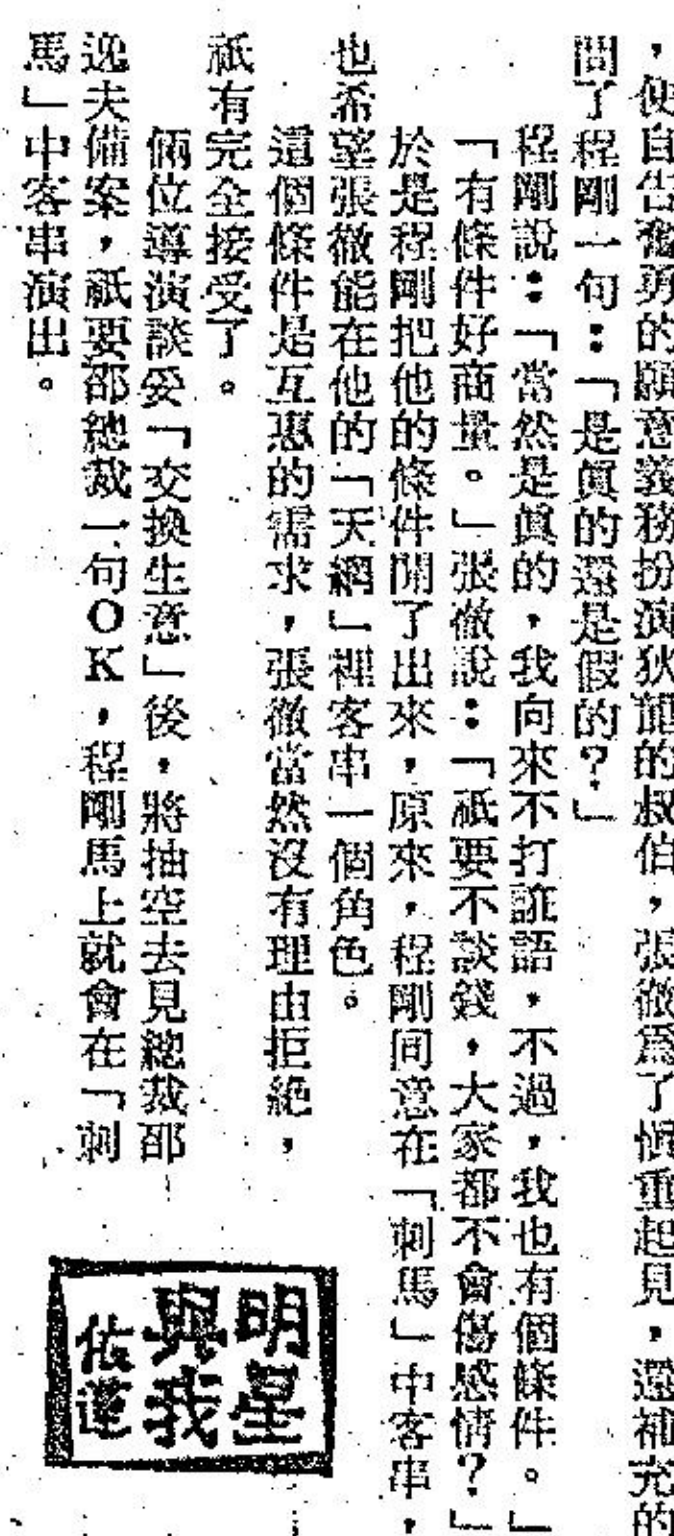 ，便自告奮勇的願意義務扮演狄龍的叔伯，張徹爲了愼重起見，還補充的
問了程剛一句：「是眞的還是假的？」
程剛說：「當然是眞的，我向來不打誑語，不過，我也有個條件。」
「有條件好商量。」張徹說：「祇要不談錢，大家都不會傷感情？」
於是程剛把他的條件開了出來，原來，程剛同意在「刺馬」中客串，
也希望張徹能在他的「天網」裡客串一個角色。
這個條件是互惠的需求，張徹當然沒有理由拒絕，
祇有完全接受了。
倆位導演談妥「交換生意」後，將抽空去見總裁邵
逸夫備案，祇要邵總裁一句OK，程剛馬上就會在「刺
馬」中客串演出。
明星
與我
依蓮